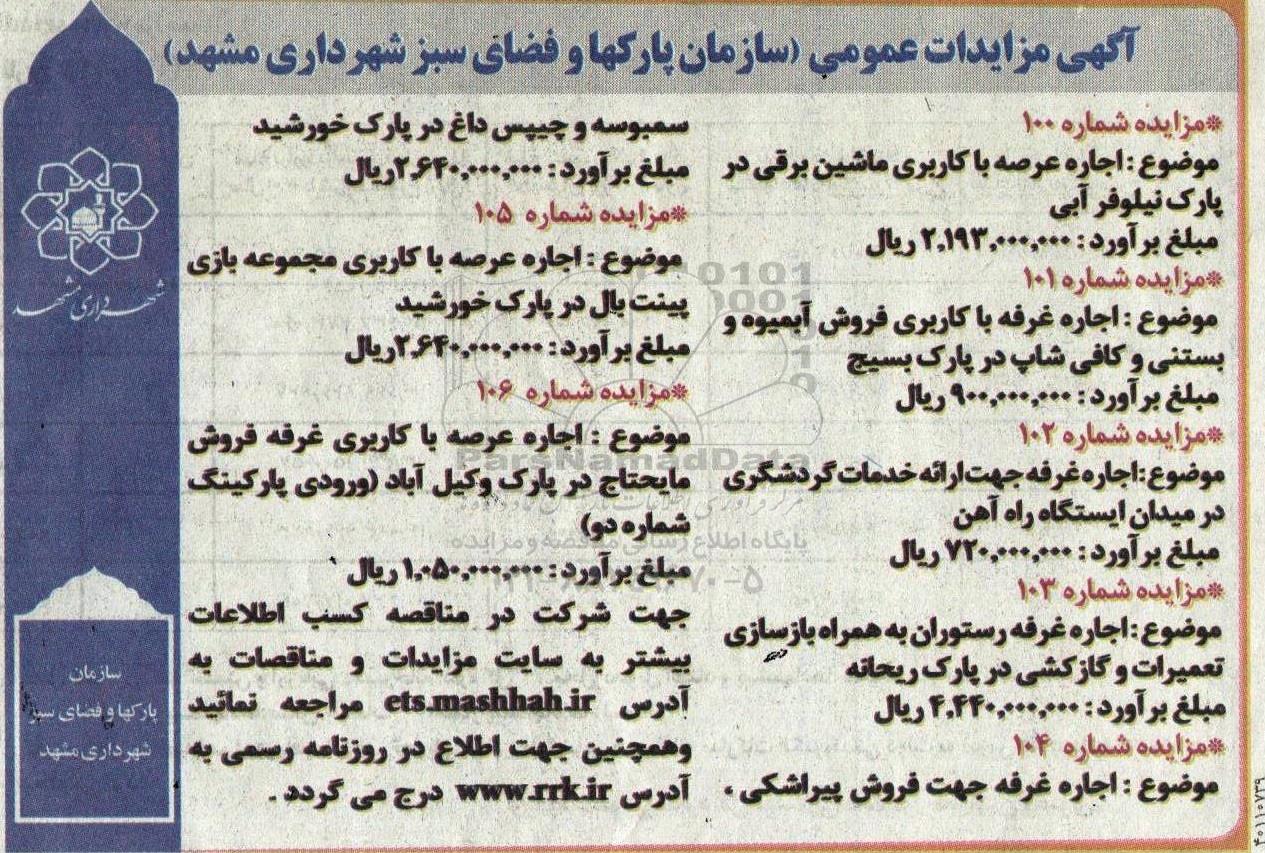 آگهی مزایدات عمومی (سازمان پارکها و فضای سبز شهرداری مشهد)
*مزایده شماره ۱۰۰
موضوع : اجاره عرصه با کاربری ماشین برقی در
پارک نیلوفر آبی
مبلغ برآورد : ۲,۱۹۳,۰۰۰,۰۰۰ ریال
*مزایده شماره ۱۰۱
موضوع : اجاره غرفه با کاربری فروش آبمیوه و
بستنی و کافی شاپ در پارک بسیج
مبلغ برآورد : ۹۰۰,۰۰۰,۰۰۰ ریال
*مزایده شماره ۱۰۲
موضوع:اجاره غرفه جهت ارائه خدمات گردشگری
در میدان ایستگاه راه آهن
مبلغ برآورد : ۷۲۰,۰۰۰,۰۰۰ ریال
*مزایده شماره ۱۰۳
موضوع : اجاره غرفه رستوران به همراه بازسازی
تعمیرات و گازکشی در پارک ریحانه
مبلغ برآورد : ۴,۴۴۰,۰۰۰,۰۰۰ ریال
*مزایده شماره ۱۰۴
موضوع : اجاره غرفه جهت فروش پیراشکی ،
سمبوسه و چیپس داغ در پارک خورشید
مبلغ برآورد : ۲,۶۴۰,۰۰۰,۰۰۰ریال
*مزایده شماره ۱۰۵
موضوع : اجاره عرصه با کاربری مجموعه بازی
پینت بال در پارک خورشید
مبلغ برآورد : ۲,۶۴۰,۰۰۰,۰۰۰ریال
*مزایده شماره ۱۰۶
موضوع : اجاره عرصه با کاربری غرفه فروش
مایحتاج در پارک وکیل آباد (ورودی پارکینگ
شماره دو)
مبلغ برآورد : ۱,۰۵۰,۰۰۰,۰۰۰ ریال
جهت شرکت در مناقصه کسب اطلاعات
بیشتر به سایت مزایدات و مناقصات به
آدرس ets.mashhah.ir مراجعه نمائید
وهمچنین جهت اطلاع در روزنامه رسمی به
آدرس www.rrk.ir درج می گردد .
شهرداری مشهد
سازمان
پارکها و فضای سبز
شهرداری مشهد
ParsNamadData
پایگاه اطلاع رسانی مناقصه و مزایده
۴۰۱۱۰۷۳۹